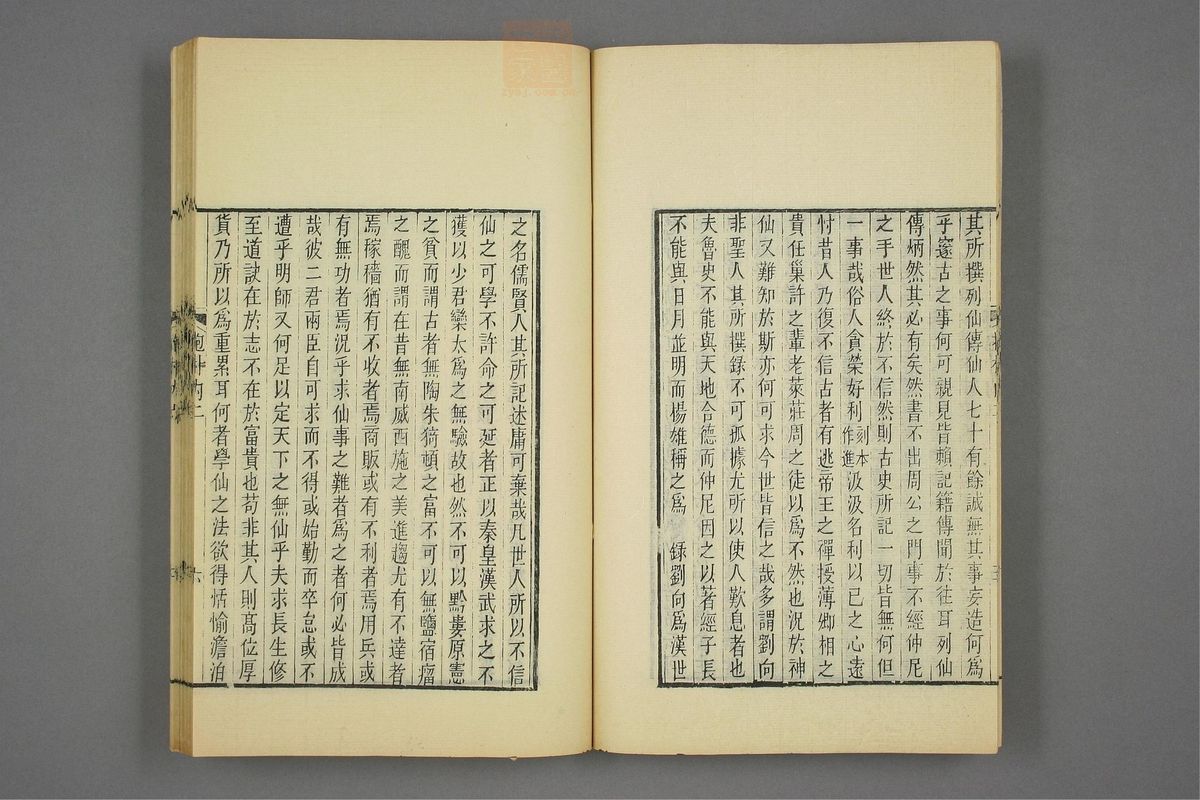 其所撰列仙傳仙人七十有餘誠無其事妄造何爲
乎邃古之事何可親見皆賴記籍傳聞於往耳列仙
傳炳然其必有矣然書不出周公之門事不經仲尼
之手世人終於不信然則古史所記一切皆無何但
一事哉俗人貪榮好利刻本作進汲汲名利以己之心遠
忖昔人乃復不信古者有逃帝王之禪授薄卿相之
貴任巢許之輩老萊莊周之徒以爲不然也況於神
仙又難知於斯亦何可求今世皆信之哉多謂劉向
非聖人其所撰錄不可孤據尤所以使人歎息者也
夫魯史不能與天地合德而仲尼因之以著經子長
不能與日月並明而楊雄稱之爲 錄劉向爲漢世
之名儒賢人其所記述庸可棄哉凡世人所以不信
仙之可學不許命之可延者正以秦皇漢武求之不
獲以少君欒太爲之無驗故也然不可以黔婁原憲
之貧而謂古者無陶朱猗頓之富不可以無鹽宿瘤
之醜而謂在昔無南威西施之美進趨尤有不達者
焉稼穡猶有不收者焉商販或有不利者焉用兵或
有無功者焉況乎求仙事之難者爲之者何必皆成
哉彼二君兩臣自可求而不得或始勤而卒怠或不
遭乎明師又何足以定天下之無仙乎夫求長生修
至道訣在於志不在於富貴也苟非其人則高位厚
貨乃所以爲重累耳何者學仙之法欲得恬愉澹泊
抱朴內二
六